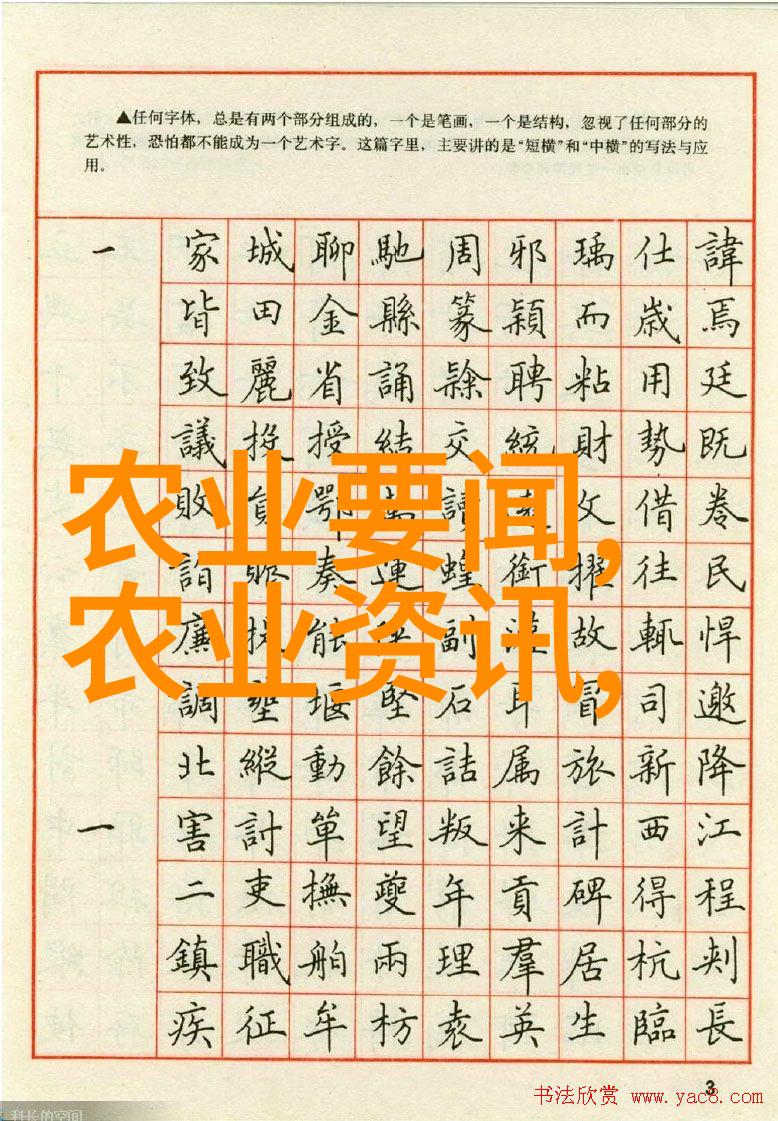 ▲任何字体，总是有两个部分组成的，一个是笔画，一个是结构，忽视了任何部分的
艺术性，恐怕都不能成为一个艺术字。这篇字里，主要讲的是“短横”和“中横”的写法与应
用。
一 家 城 聊 馳 周 邪 瑀 仕 諱
皆 田 金 縣 篆 穎 而 歲 焉
致 麗 省 誦 賒 聘 粘 用 廷
議 投 授 結 交 統 財 勢 既
敗 鄂 讀 文 借 卷
詣 奏 連 蝗 銜 擢 往 民
廉 能 副 漢 故 輒 悍
調 壅 堰 堅 石 耳 冒 司 邀
北 縱 動 餘 詰 属 旅 新 降
一 害 討 單 望 叛 来 計 西 江
二 吏 撫 夔 年 貢 碑 得 程
鎮 職 舶 兩 理 羣 居 杭 刾
疾 征 牟 枋 袁 英 生 臨 長
农业要闻,
农业资讯,
3
书法欣赏 www.yac8.com
科长的空间